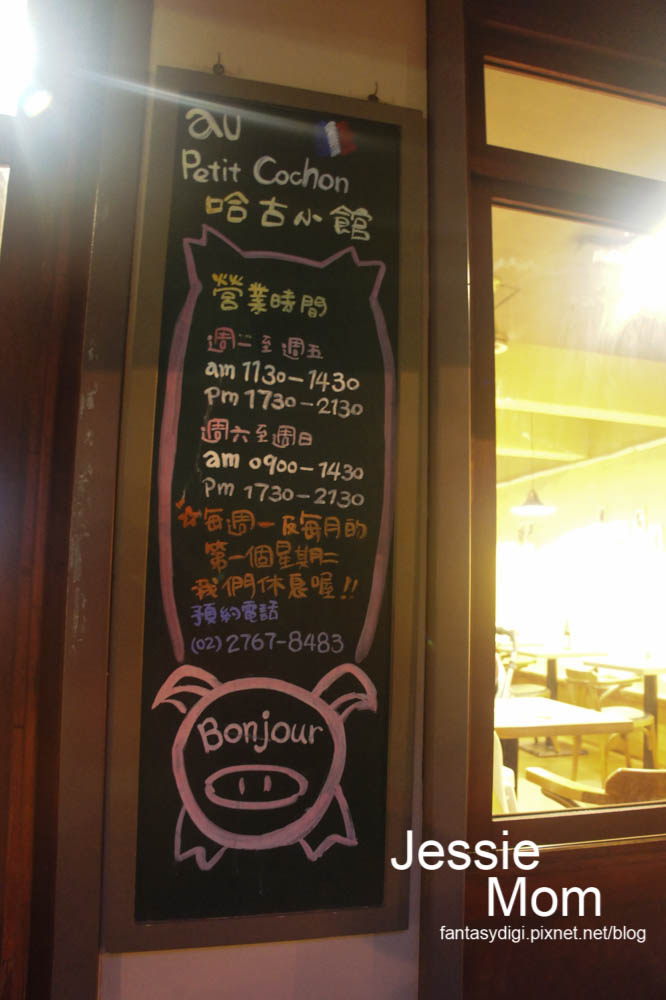 au
Petit Cochon
哈古小館
營業時間
週二至週五
am 1130-1430
Pm 1730-2130
週六至週日
am 0900-1430
Pm 1730-2130
☆每週一及每月的
第一個星期二
我們休息喔!!
預約電話
(02) 2767-8483
Bonjour
Jessie
Mom
fantasydigi.pixnet.net/blog